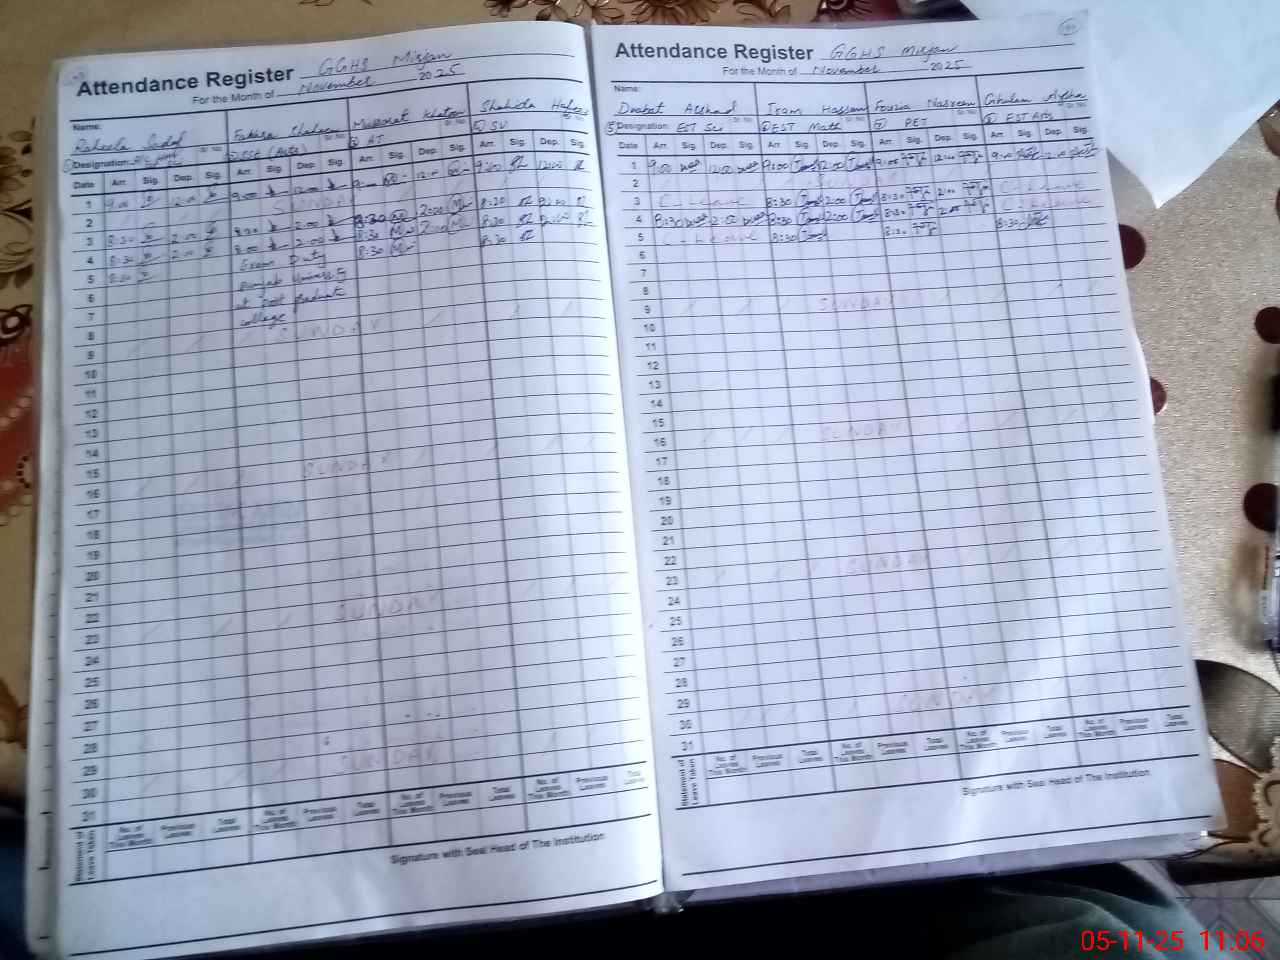 Attendance Register GGHS Mirjan
For the Month of November 2025
Name:
Raheela Fakhra Shaheen Musarat Khatoon Shahida Hafeez
Designation: SSE (Arts) AT SV
Date Arr. Sig. Dep. Sig. Arr. Sig. Dep. Sig. Arr. Sig. Dep. Sig. Arr. Sig. Dep. Sig.
1 9:00 12:00 9:00 12:00 9:00 12:00 9:00 12:00
2 SUNDAY
3 8:30 2:00 8:30 2:00 8:30 2:00 8:30 2:00
4 8:30 2:00 8:00 2:00 8:30 2:00 8:30 2:00
5 8:30 Exam Duty 8:30 8:30
6 Punjab University
7 at Post graduate
8 college
9 SUNDAY
10
11
12
13
14
15
16 SUNDAY
17
18
19
20
21
22
23 SUNDAY
24
25
26
27
28
29
30 SUNDAY
31
Statement of Leave Taken
No. of Leaves This Month Previous Leaves Total Leaves No. of Leaves This Month Previous Leaves Total Leaves No. of Leaves This Month Previous Leaves Total Leaves No. of Leaves This Month Previous Leaves Total Leaves
Signature with Seal Head of The Institution
Attendance Register GGHS Mirjan
For the Month of November 2025
Name:
Arshad Isam Hassan Fouzia Nasreen Ghulam
Designation: EST Sci EST Math PET EST Arts
Date Arr. Sig. Dep. Sig. Arr. Sig. Dep. Sig. Arr. Sig. Dep. Sig. Arr. Sig. Dep. Sig.
1 9:00 12:00 9:00 12:00 9:00 12:00 9:00 12:00
2 SUNDAY
3 C-Leave 8:30 2:00 8:30 2:00 C-Leave
4 8:30 2:00 8:30 2:00 8:30 2:00 C-Leave
5 C-Leave 8:30 8:30 8:30
6
7
8
9 SUNDAY
10
11
12
13
14
15
16 SUNDAY
17
18
19
20
21
22
23 SUNDAY
24
25
26
27
28
29
30 SUNDAY
31
Statement of Leave Taken
No. of Leaves This Month Previous Leaves Total Leaves No. of Leaves This Month Previous Leaves Total Leaves No. of Leaves This Month Previous Leaves Total Leaves No. of Leaves This Month Previous Leaves Total Leaves
Signature with Seal Head of The Institution
05-11-25 11:06